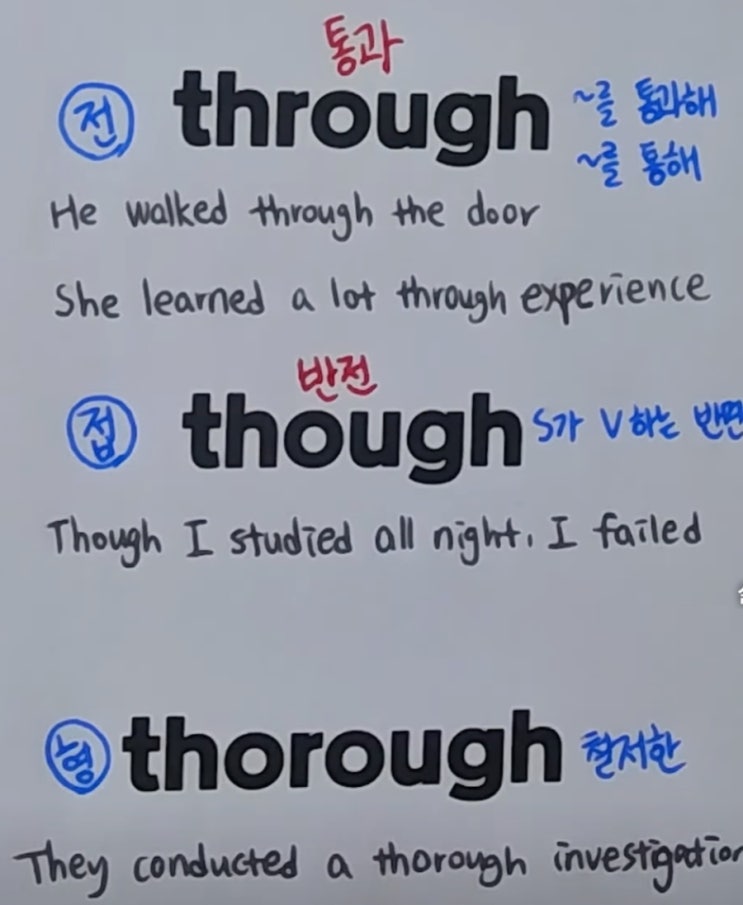 통과
전 through ~를 통과해
~를 통해
He walked through the door
She learned a lot through experience
반전
접 though S가 V하는 반면
Though I studied all night, I failed
형 thorough 철저한
They conducted a thorough investigation